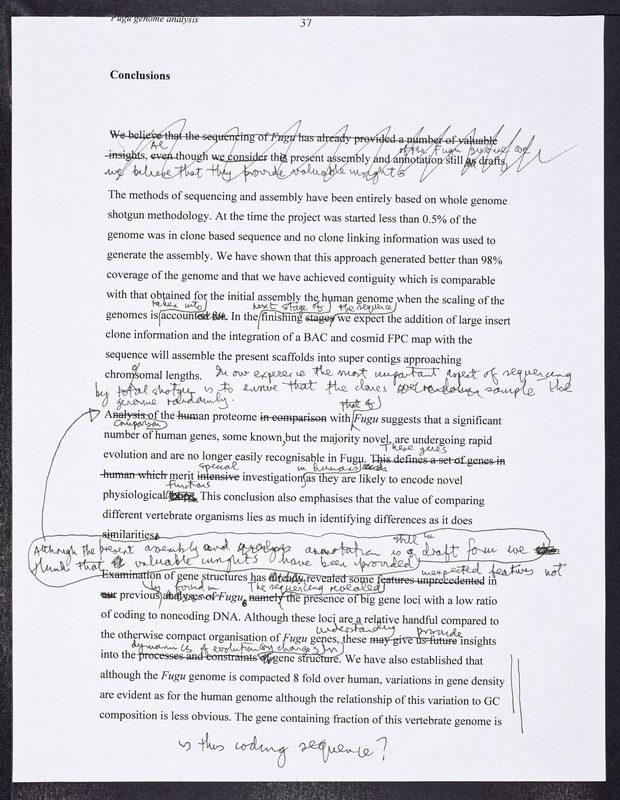 Fugu genome analysis
37
Conclusions
We believe that the sequencing of Fugu has already provided a number of valuable
of the Fugu genome are
insights, even though we consider this present assembly and annotation still as drafts,
we believe that they provide valuable insights
The methods of sequencing and assembly have been entirely based on whole genome
shotgun methodology. At the time the project was started less than 0.5% of the
genome was in clone based sequence and no clone linking information was used to
generate the assembly. We have shown that this approach generated better than 98%
coverage of the genome and that we have achieved contiguity which is comparable
with that obtained for the initial assembly the human genome when the scaling of the
taken into next stage of the sequence
genomes is accounted for. In the finishing stages we expect the addition of large insert
clone information and the integration of a BAC and cosmid FPC map with the
sequence will assemble the present scaffolds into super contigs approaching
chromosomal lengths. In our experience the most important aspect of sequencing
by total shotgun is to ensure that the clones sample the
genome randomly.
that of
Analysis of the human proteome in comparison with Fugu suggests that a significant
comparison
number of human genes, some known, but the majority novel, are undergoing rapid
These genes
evolution and are no longer easily recognisable in Fugu. This defines a set of genes in
special in humans
human which merit intensive investigation as they are likely to encode novel
functions
physiological This conclusion also emphasises that the value of comparing
different vertebrate organisms lies as much in identifying differences as it does
similarities.
still in
Although the present assembly and annotation is a draft form we
think that valuable insights have been provided
unexpected features not
Examination of gene structures has already revealed some features unprecedented in
found in the sequencing revealed
our previous analyses of Fugu, namely the presence of big gene loci with a low ratio
of coding to noncoding DNA. Although these loci are a relative handful compared to
understanding provide
the otherwise compact organisation of Fugu genes, these may give us future insights
dynamics of evolutionary changes in
into the processes and constraints of gene structure. We have also established that
although the Fugu genome is compacted 8 fold over human, variations in gene density
are evident as for the human genome although the relationship of this variation to GC
composition is less obvious. The gene containing fraction of this vertebrate genome is
is this coding sequence?